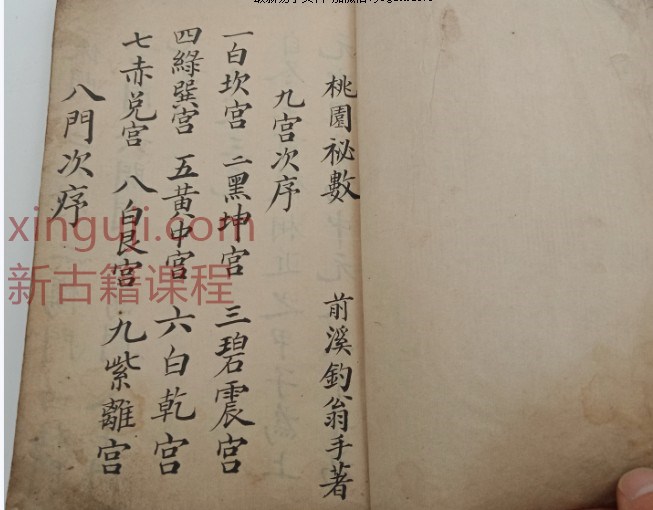 桃園祕數 前溪釣翁手著
九宮次序
一白坎宮 二黑坤宮 三碧震宮
四綠巽宮 五黃中宮 六白乾宮
七赤兌宮 八白艮宮 九紫離宮
八門次序
xinguji.com
新古籍课程